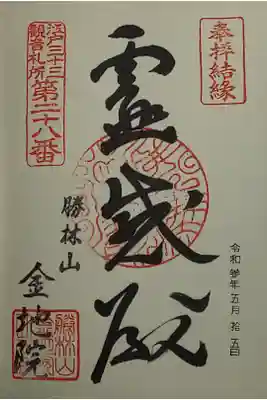 奉拝結縁
令和参年五月拾五日
霊感殿
江戸三十三
観音札所
第二十八番
勝林山
金地院